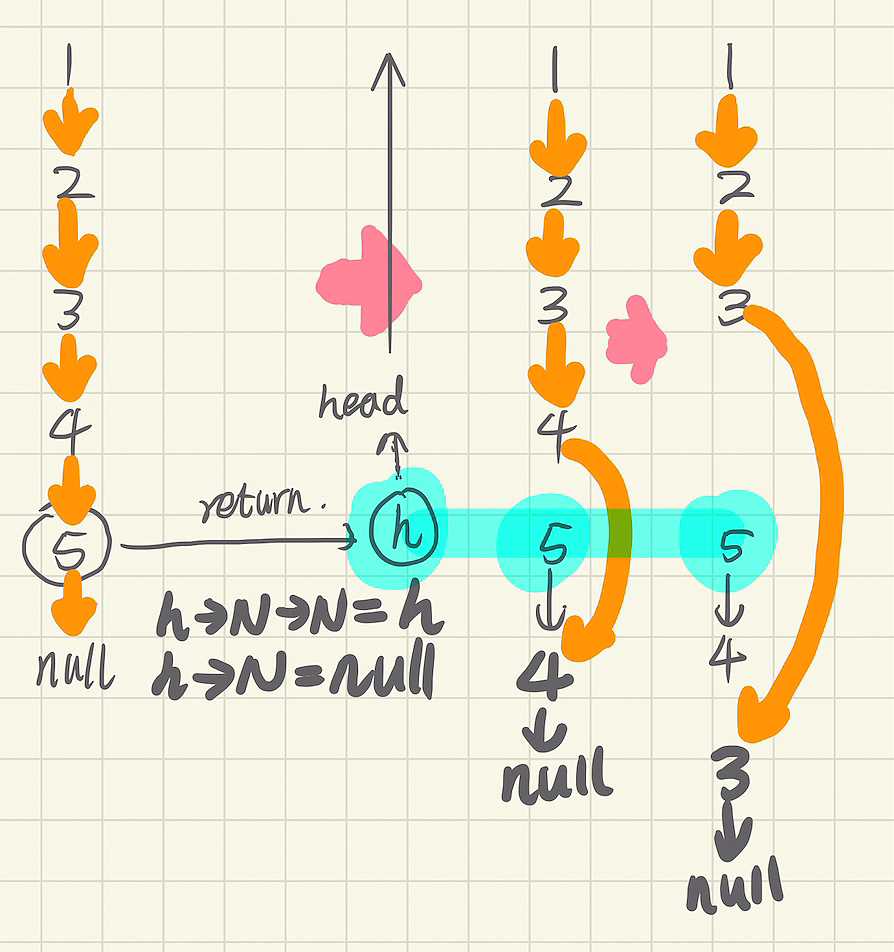 1
2
3
4
5
null
return.
head
h
h→N→N=h
h→N=null
1
2
3
4
5
4
null
1
2
3
5
4
3
null